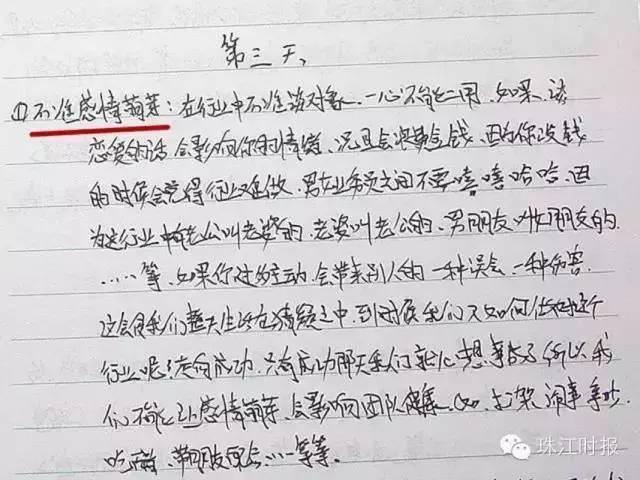 第三天
(1)不准感情萌芽:在行业中不准谈对象.一心不能二用.如果谈
恋爱的话会影响你的情绪、况且会浪费金钱、因为你没钱
的时候会觉得行业难做.男女业务员之间不要嘻嘻哈哈.因
为这行业中有老公叫老婆的.老婆叫老公的、男朋友叫女朋友的.
……等.如果你过于主动.会带来别人的一种误会一种伤害.
这会使我们整天生活在猜疑之中.到时候我们又如何
行业呢?走向成功.只有成功那天我们 所以我
们不能让感情萌芽.会影响团队 如.打架闹事
吃醋、带朋友 …等等.
珠江时报